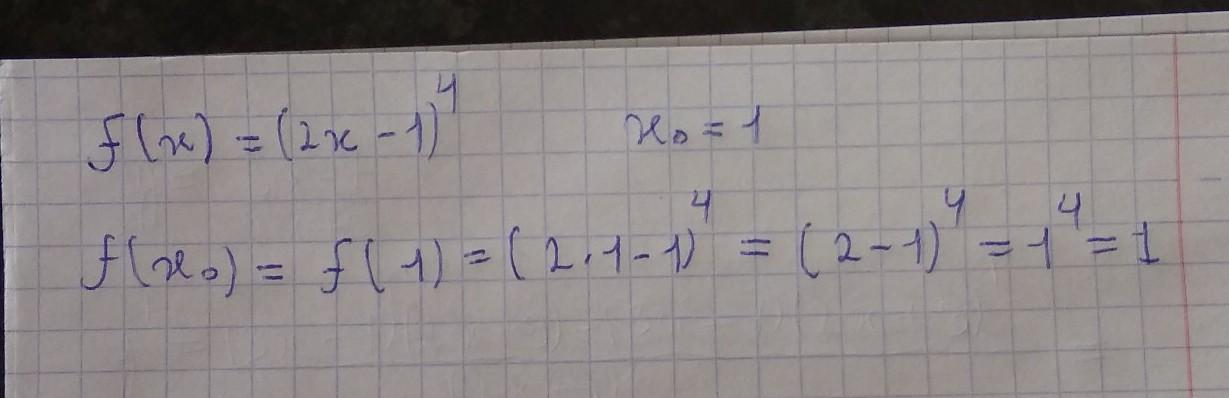 f(x) = (2x - 1)⁴ x₀ = 1
f(x₀) = f(1) = (2·1-1)⁴ = (2-1)⁴ = 1⁴ = 1